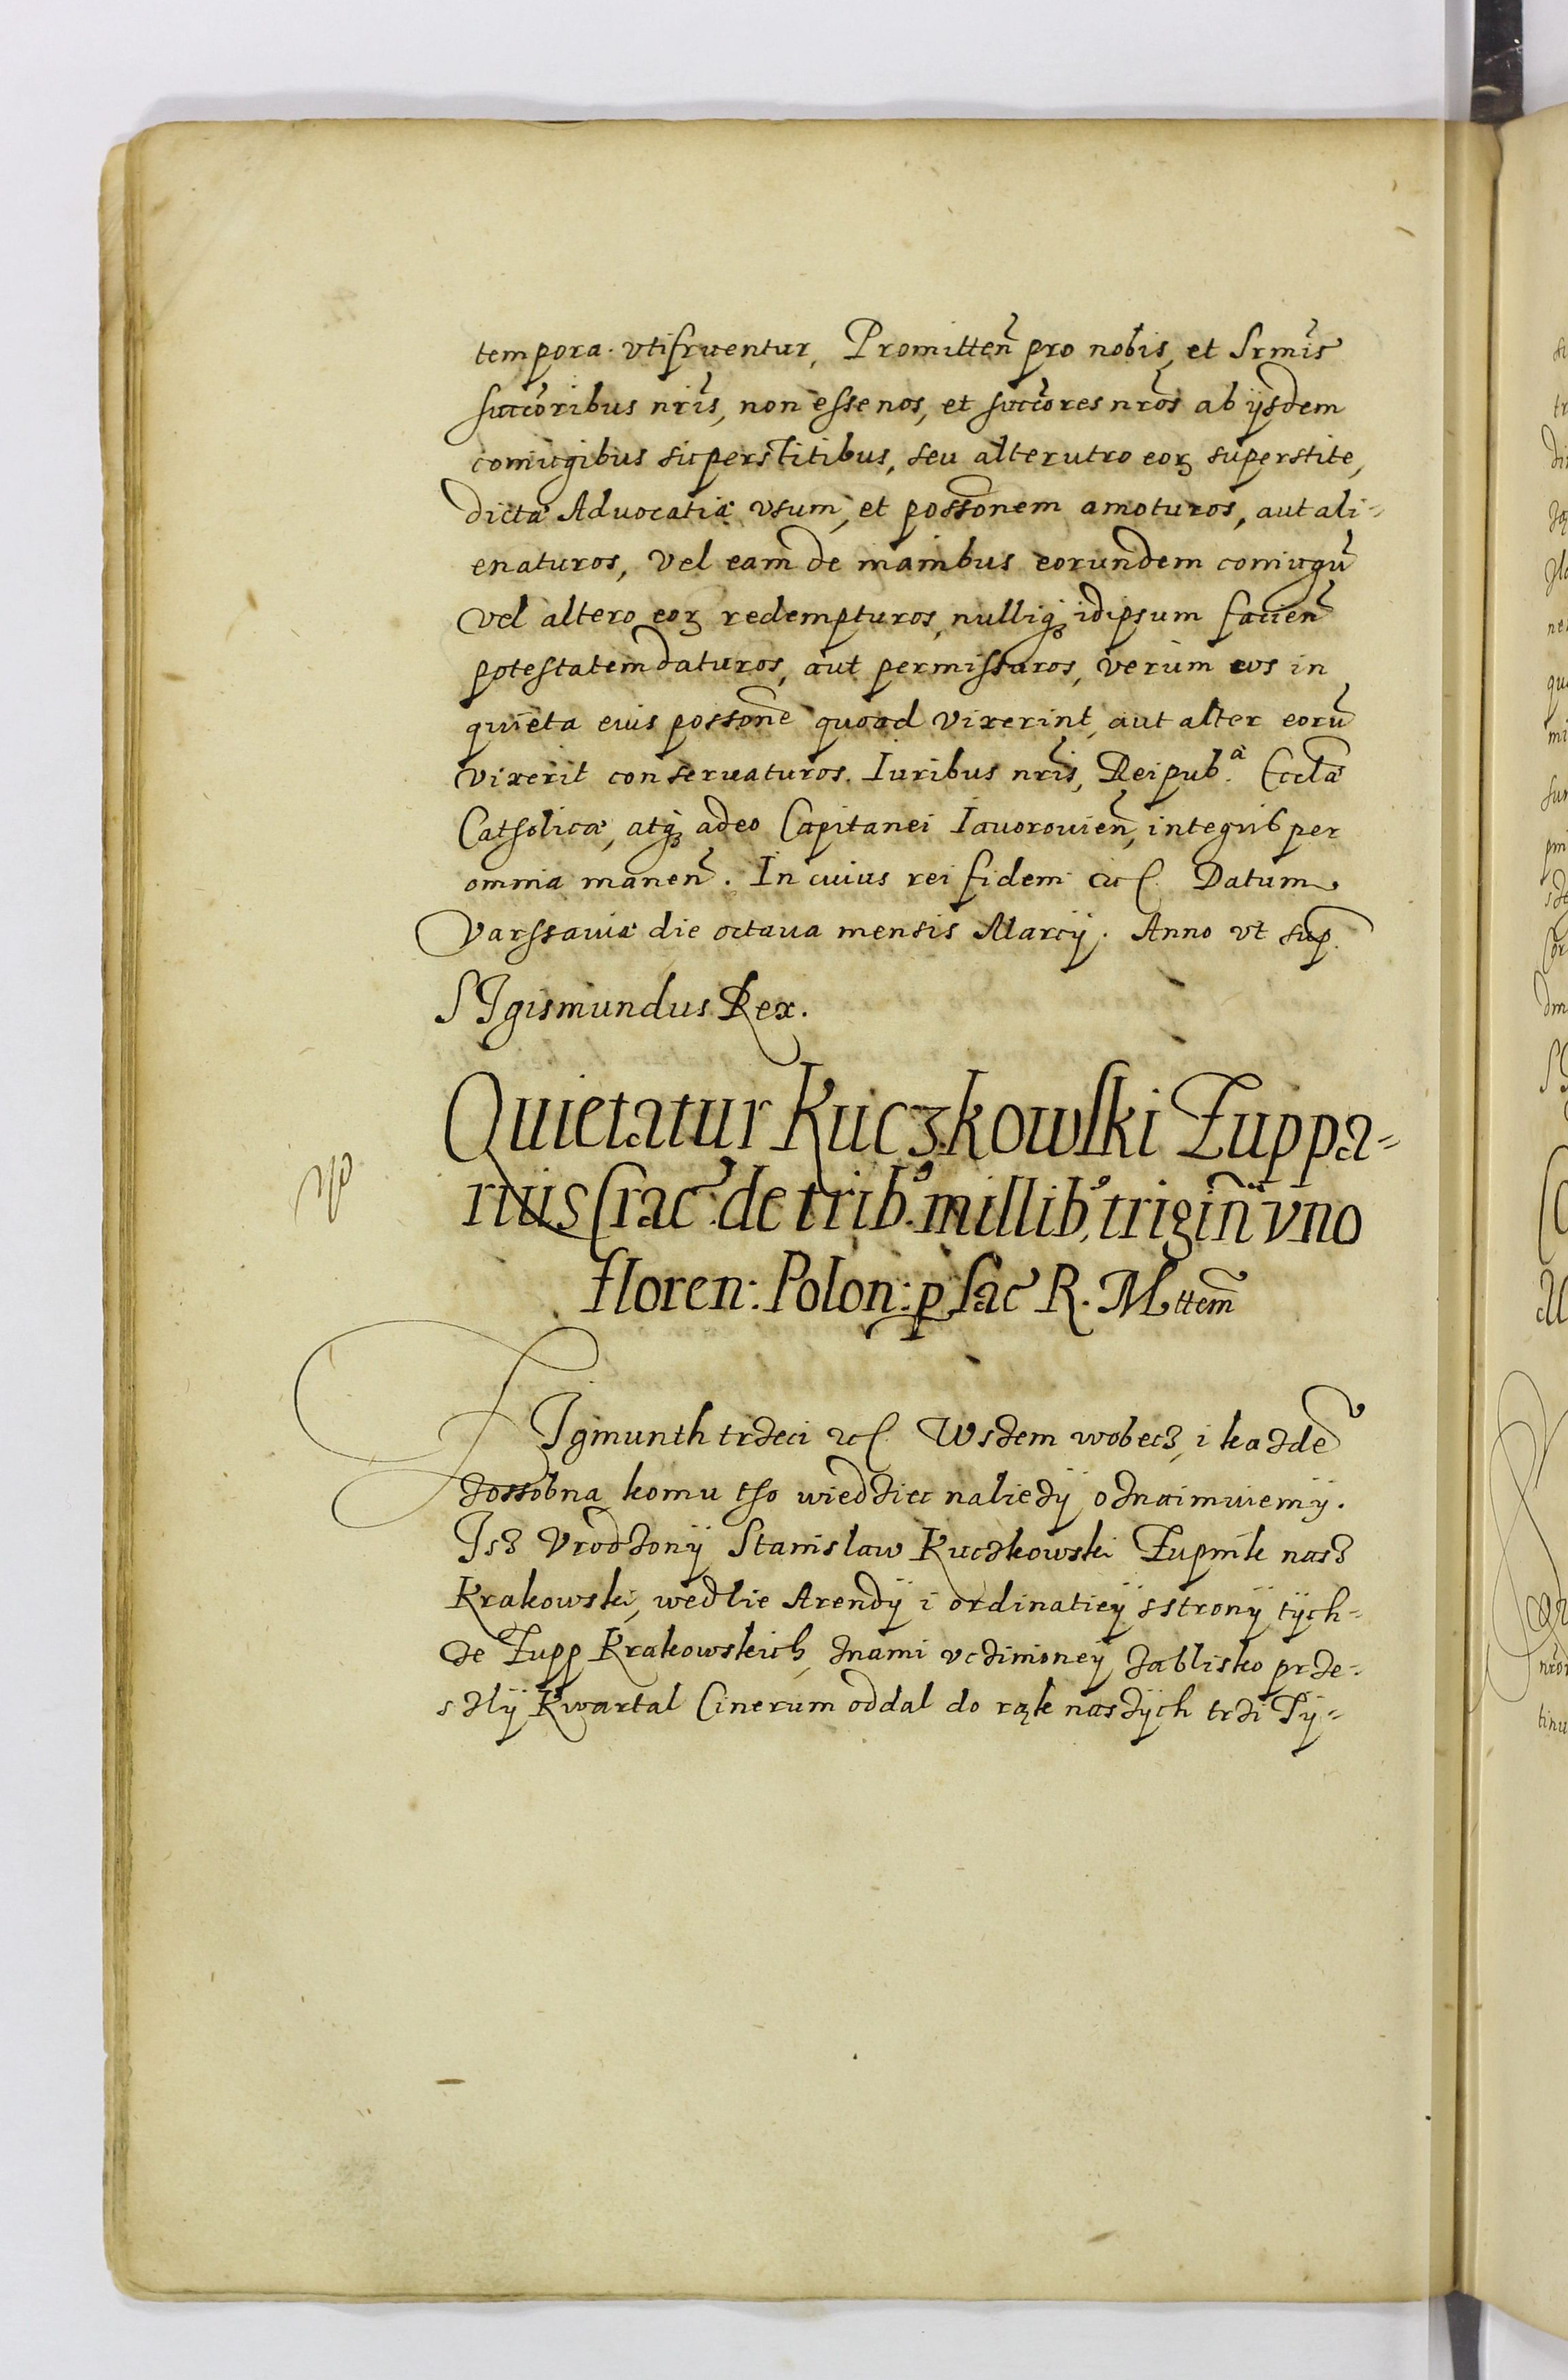 tempora utifruentur, Promitteñ pro nobis, et Srmis
succoribus nris, non esse nos, et succores nros ab ijsdem
coniugibus superstitibus, seu alterutro eorꝫ superstite,
dictæ Advocatiæ vsum, et possonem amoturos, aut ali=
enaturos, vel eam de manibus eorundem coniugũ
vel altero eorꝫ redempturos, nulliqꝫ idipsum facien̄
potestatem daturos, aut permissuros, verum eos in
quieta eius possone quoad vixerint, aut alter eorũ
vixerit conseruaturos. Iuribus nris, Reipub.ᵃ Eccłæ
Catholicæ, atqꝫ adeo Capitanei Iauorouien̄, integris per
omnia manen̄. In cuius rei fidem etc. Datum
Varssauiæ die octaua mensis Marcij. Anno vt sup.
SIgismundus Rex.
Quietatur Kuczkowski Zuppa=
rius Crac. de trib. millib. trigin̄ vno
floren: Polon: p Sac R. Mttem̄
ZIgmunth trzeci etc. Wszem wobecz, i kazde
zossobna komu tho wiedziec naliezÿ oznaimuiemÿ.
Isz Vrodzonÿ Stanislaw Kuczkowski Zupnik nasz
Krakowski, wedlie Arendÿ i ordinatieÿ sstronÿ tÿch=
ze Zupp Krakowskich, znami vczinioneÿ zablisko prze=
szlÿ Kwartal Cinerum oddal do rąk naszÿch trzi Tÿ=